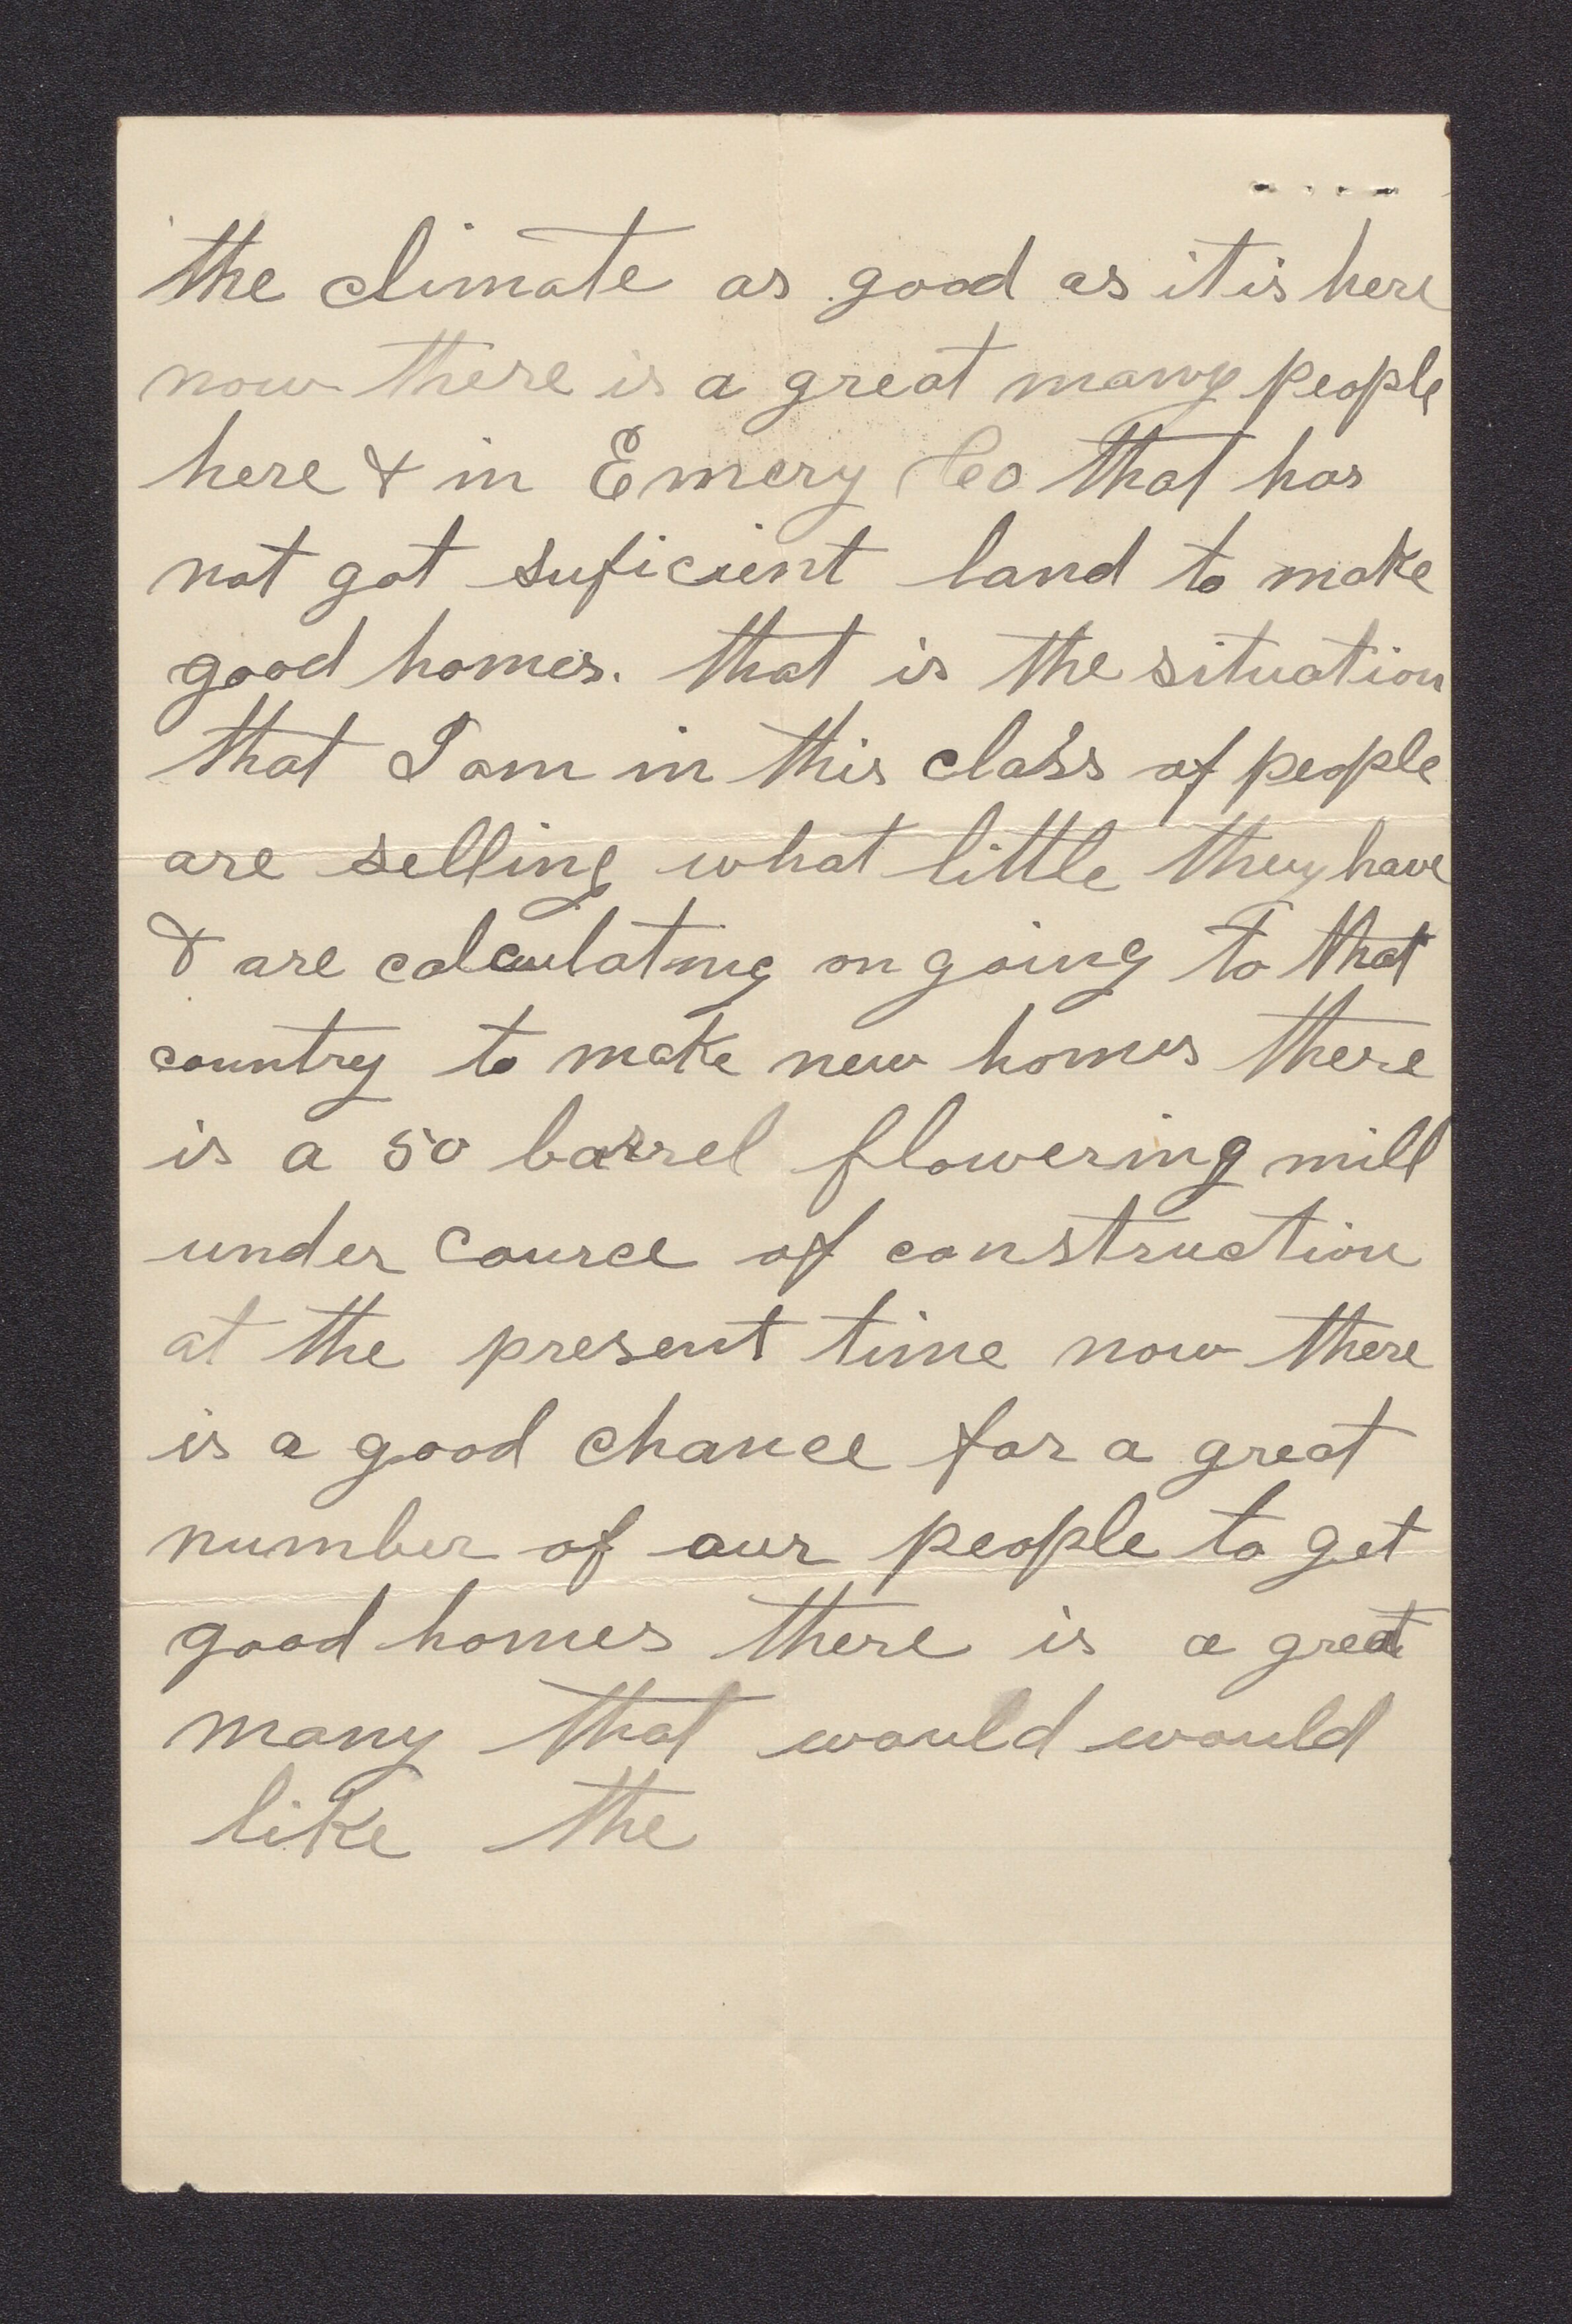 the climate as good as it is here
now there is a great many people
here & in Emery Co that has
not got suficient land to make
good homes. that is the situation
that I am in this class of people
are selling what little they have
& are calculating on going to that
country to make new homes there
is a 50 barrel flowering mill
under cource of construction
at the present time now there
is a good chance for a great
number of our people to get
good homes there is a great
many that would would
like the